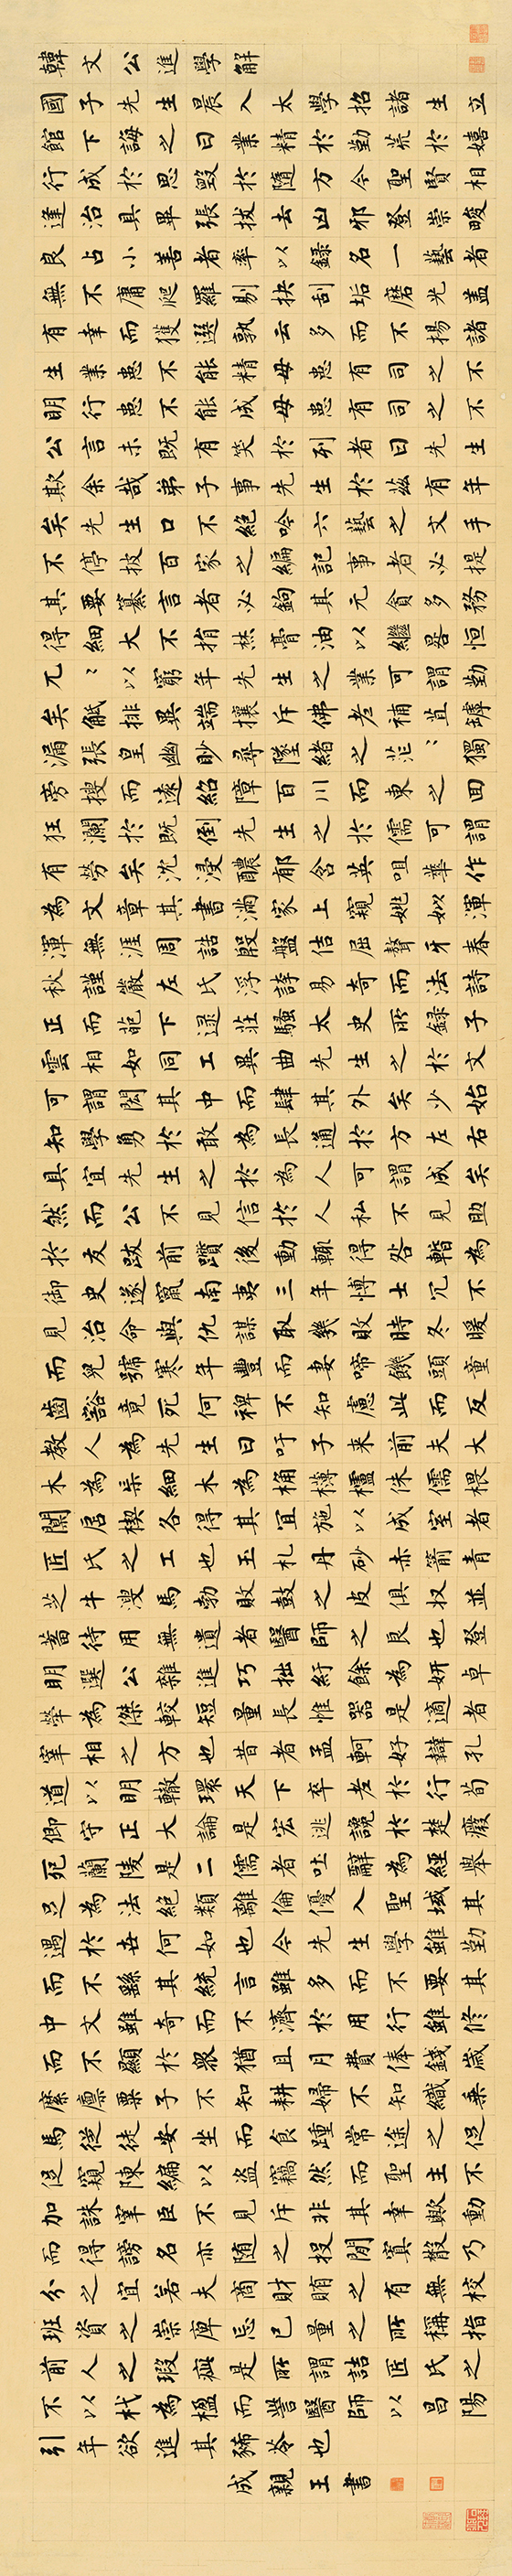 韓文公進學解
國子先生晨入太學招諸生立
館下誨之曰業精於勤荒於嬉
行成於思毀於隨方今聖賢相
逢治具畢張拔去凶邪登崇畯
良占小善者率以錄名一藝者
無不庸爬羅剔抉刮垢磨光蓋
有幸而獲選孰云多而不揚諸
生業患不能精毋患有司之不
明行患不能成毋患有司之不
公言未既有笑於列者曰先生
欺余哉弟子事先生於茲有年
矣先生口不絕吟六藝之文手
不停披百家之編記事者必提
其要纂言者必鉤其元貪多務
得細大不捐焚膏油以繼晷恒
兀〻以窮年先生之業可謂勤
矣觝排異端攘斥佛老補苴罅
漏張皇幽眇尋墜緒之茫〻獨
旁搜而遠紹障百川而東之回
狂瀾於既倒先生之於儒可謂
有勞矣沈浸醲郁含英咀華作
為文章其書滿家上窺姚姒渾
渾無涯周誥殷盤佶屈聱牙春
秋謹嚴左氏浮誇易奇而法詩
正而葩下逮莊騷太史所錄子
雲相如同工異曲先生之於文
可謂閎其中而肆其外矣少始
知學勇於敢為長通於方左右
具宜先生之於為人可謂成矣
然而公不見信於人私不見助
於友跋前躓後動輒得咎暫為
御史遂竄南夷三年博士冗不
見治命與仇謀取敗幾時冬暖
而兒號寒年豐而妻啼飢頭童
齒豁竟死何裨不知慮此而反
教人為先生曰吁子來前夫大
木為杗細木為桷欂櫨侏儒椳
闑扂楔各得其宜施以成室者
匠氏之工也玉札丹砂赤箭青
芝牛溲馬勃敗鼓之皮俱收並
蓄待用無遺者醫師之良也登
明選公雜進巧拙紆餘為妍卓
犖為傑較短量長惟器是適者
宰相之方也昔者孟軻好辯孔
道以明轍環天下卒老於行荀
卿守正大論是宏逃讒於楚廢
死蘭陵是二儒者吐辭為經舉
足為法絕類離倫優入聖域其
遇於世何如也今先生學雖勤
而不繇其統言雖多而不要其
中文雖奇而不濟於用行雖修
而不顯於眾猶且月費俸錢歲
靡廩粟子不知耕婦不知織乘
馬從徒安坐而食踵常途之促
促窺陳編以盜竊然而聖主不
加誅宰臣不見斥非其幸歟動
而得謗名亦隨之投閒置散乃
分之宜若夫商財賄之有無校
班資之崇庳忘己量之所稱指
前人之瑕疵是所謂詰匠氏之
不以杙為楹而訾醫師以昌陽
引年欲進其豨苓也
成親王書